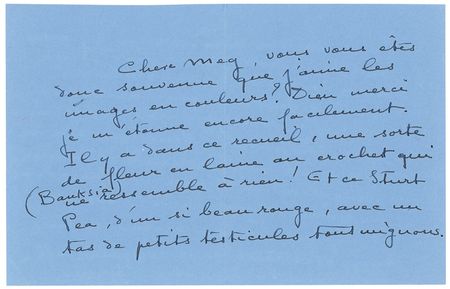 Chere Meg, vous vous êtes
donc souvenue que j'aime les
images en couleurs? Dieu merci
je m'étonne encore facilement.
Il y a dans ce recueil, une sorte
de fleur en laine au crochet qui
(Banksia) ne ressemble à rien! Et ce Sturt
Pea, d'un si beau rouge, avec un
tas de petits testicules tout mignons.